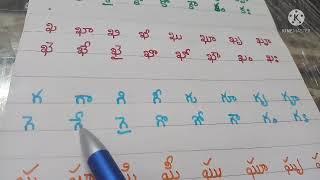 కం కః
KINEMASTER
ఖ ఖా ఖి ఖీ ఖు ఖూ ఖృ ఖౄ
ఖె ఖే ఖై ఖొ ఖో ఖౌ ఖం ఖః
గ గా గి గీ గు గూ గృ గౄ
గె గే గై గొ గో గౌ గం గః
ఘ ఘి ఘీ ఘు ఘూ ఘృ